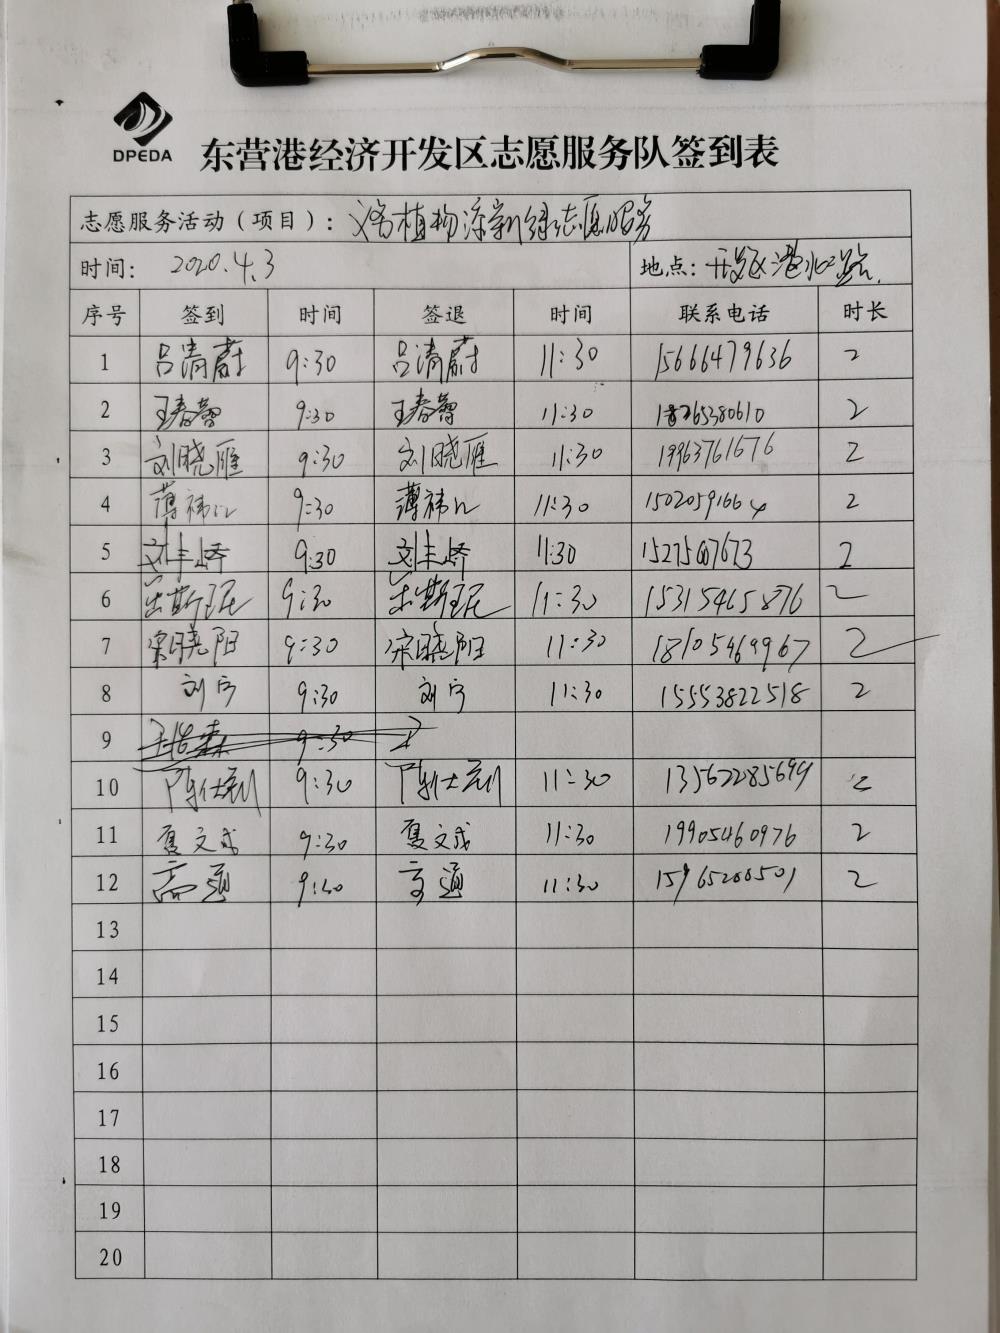 DPEDA
东营港经济开发区志愿服务队签到表
志愿服务活动（项目）：义务植物添新绿志愿服务
时间： 2020.4.3 地点：开发区港北二路.
序号 签到 时间 签退 时间 联系电话 时长
1 吕清蔚 9:30 吕清蔚 11:30 15666479636 2
2 王春蕾 9:30 王春蕾 11:30 18765380610 2
3 刘晓雁 9:30 刘晓雁 11:30 19963761676 2
4 薄祎 9:30 薄祎 11:30 15020591664 2
5 刘丰峤 9:30 刘丰峤 11:30 2
6 9:30 11:30 15315465876 2
7 宋晓阳 9:30 宋晓阳 11:30 18105469967 2
8 刘宁 9:30 刘宁 11:30 15553822518 2
9 9:30
10 陈仕 9:30 陈仕 11:30 13562285699 2
11 夏文成 9:30 夏文成 11:30 19905460976 2
12 高通 9:30 高通 11:30 15965288501 2
13
14
15
16
17
18
19
20